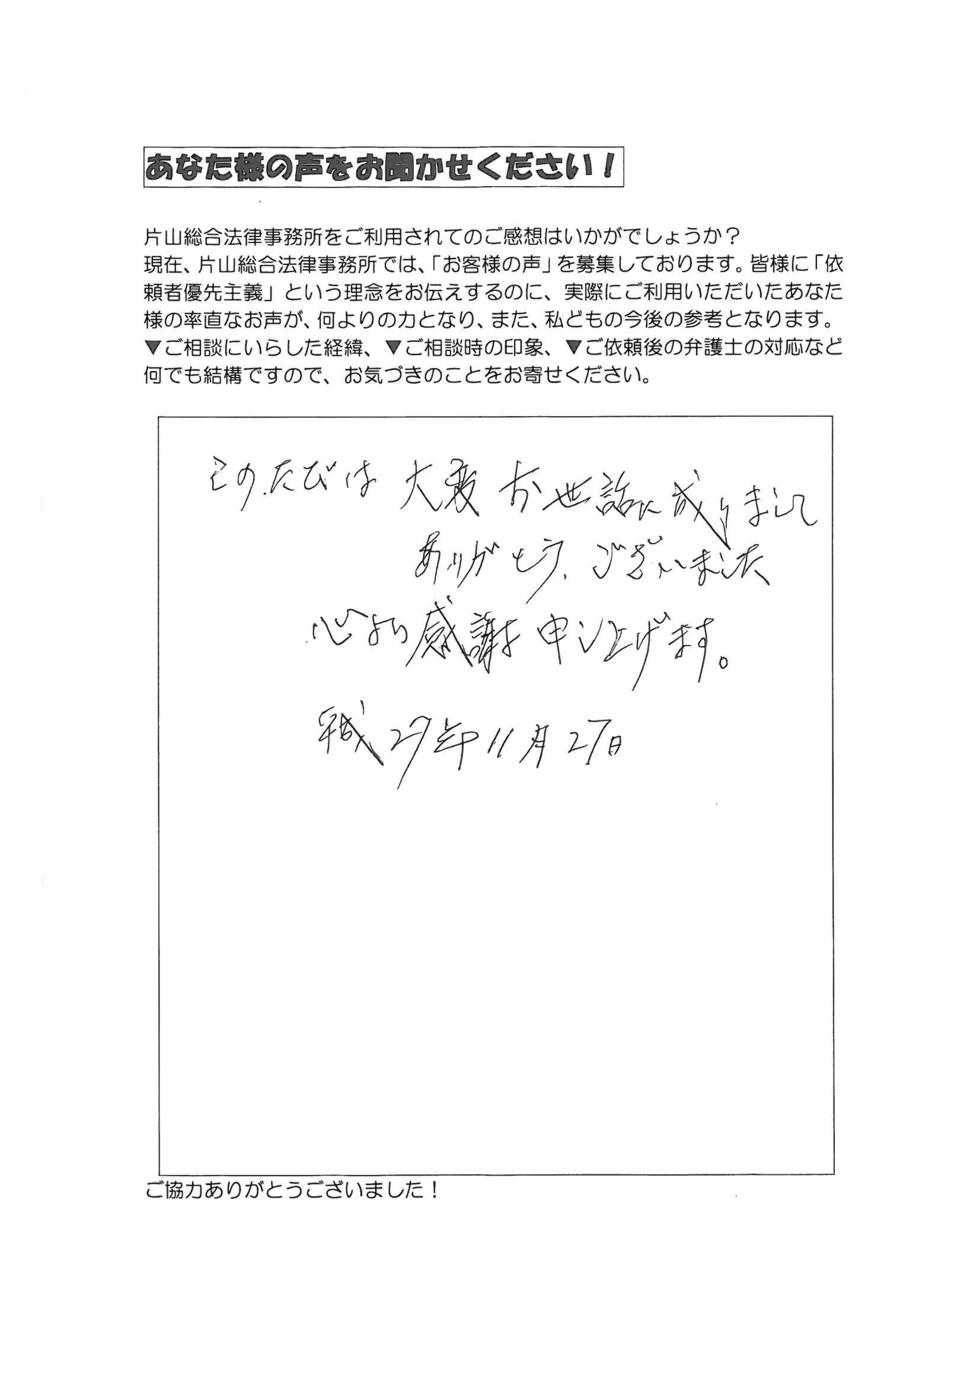 あなた様の声をお聞かせください！
片山総合法律事務所をご利用されてのご感想はいかがでしょうか？
現在、片山総合法律事務所では、「お客様の声」を募集しております。皆様に「依
頼者優先主義」という理念をお伝えするのに、実際にご利用いただいたあなた
様の率直なお声が、何よりの力となり、また、私どもの今後の参考となります。
▼ご相談にいらした経緯、▼ご相談時の印象、▼ご依頼後の弁護士の対応など
何でも結構ですので、お気づきのことをお寄せください。
このたびは 大変 お世話に成りまして
ありがとう、ございました
心より感謝を申し上げます。
平成27年11月27日
ご協力ありがとうございました！